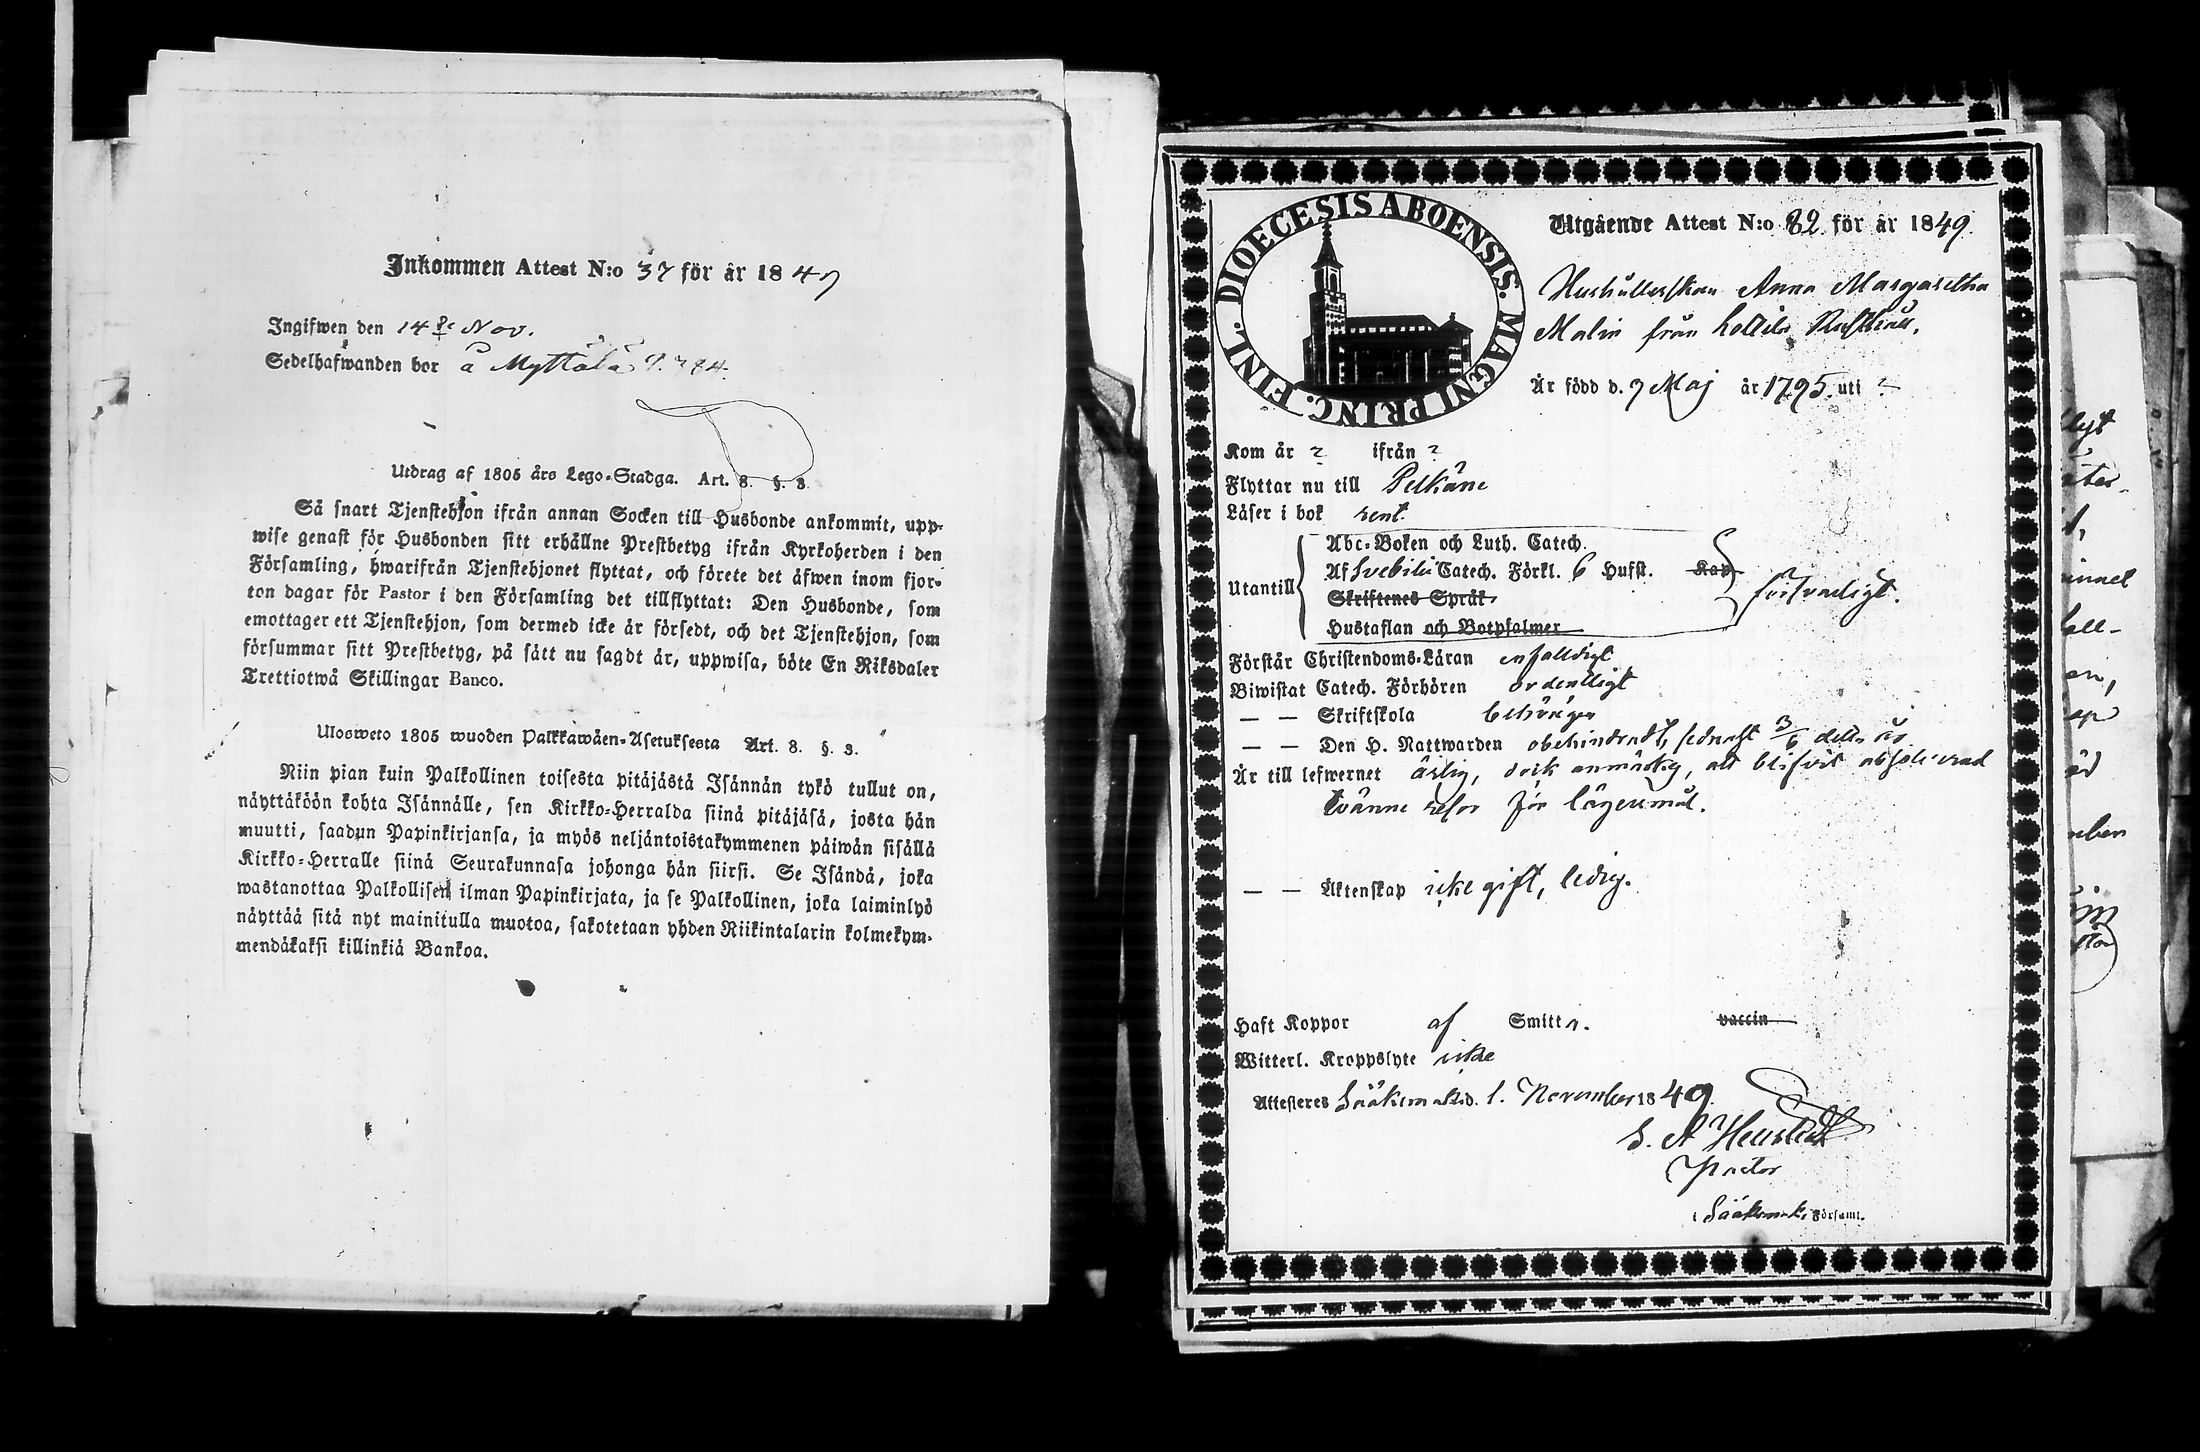 Inkommen Attest N:o 37 för år 1849
Ingifwen den 14de Nov.
Sedelhafwanden bor å Myttälä P. 284.
Utdrag af 1805 års Lego-Stadga. Art. 8. §. 3.
Så snart Tjenstehjon ifrån annan Socken till Husbonde ankommit, upp-
wise genast för Husbonden sitt erhållne Prestbetyg ifrån Kyrkoherden i den
Församling, hwarifrån Tjenstehjonet flyttat, och förete det äfwen inom fjor-
ton dagar för Pastor i den Församling det tillflyttat: Den Husbonde, som
emottager ett Tjenstehjon, som dermed icke är försedt, och det Tjenstehjon, som
försummar sitt Prestbetyg, på sätt nu sagdt är, uppwisa, böte En Riksdaler
Trettiotwå Skillingar Banco.
Ulosweto 1805 wuoden Palkkawäen-Asetuksesta Art. 8. §. 3.
Niin pian kuin Palkollinen toisesta pitäjästä Isännän tykö tullut on,
näyttäköön kohta Isännälle, sen Kirkko-Herralda siinä pitäjäsä, josta hän
muutti, saadun Papinkirjansa, ja myös neljäntoistakymmenen päiwän sisällä
Kirkko-Herralle siinä Seurakunnasa johonga hän siirsi. Se Isändä, joka
wastanottaa Palkollisen ilman Papinkirjata, ja se Palkollinen, joka laiminlyö
näyttää sitä nyt mainitulla muotoa, sakotetaan yhden Riikintalarin kolmekym-
mendäkaksi killinkiä Bankoa.
DIOECESIS ABOENSIS. MAGNI PRINC. FINL.
Utgående Attest N:o 82 för år 1849
Hushållerskan Anna Margaretha
Malin från
Är född d. 7 Maj år 1795 uti ?
Kom år ? ifrån ?
Flyttar nu till Pelkäne
Läser i bok rent.
Utantill
Abc-Boken och Luth. Catech.
Af Svebilii Catech. Förkl. 6 Hufst. Kap
Skriftenes Språk
Hustaflan och Botpsalmer
försvarligt.
Förstår Christendoms-Läran enfaldigt
Biwistat Catech. Förhören ordentligt
— — Skriftskola behörigen
— — Den H. Nattwarden obehindradt, sednast 3/6 detta år
Är till lefwernet ärlig, dock anmärkes, att blifvit absolverad
tvänne resor för lägersmål.
— — Äktenskap icke gift, ledig.
Haft Koppor af Smitta. vaccin
Witterl. Kroppslyte icke
Attesteres Sääksmäki d. 1. November 1849.
Pastor
i Sääksmäki Församl.